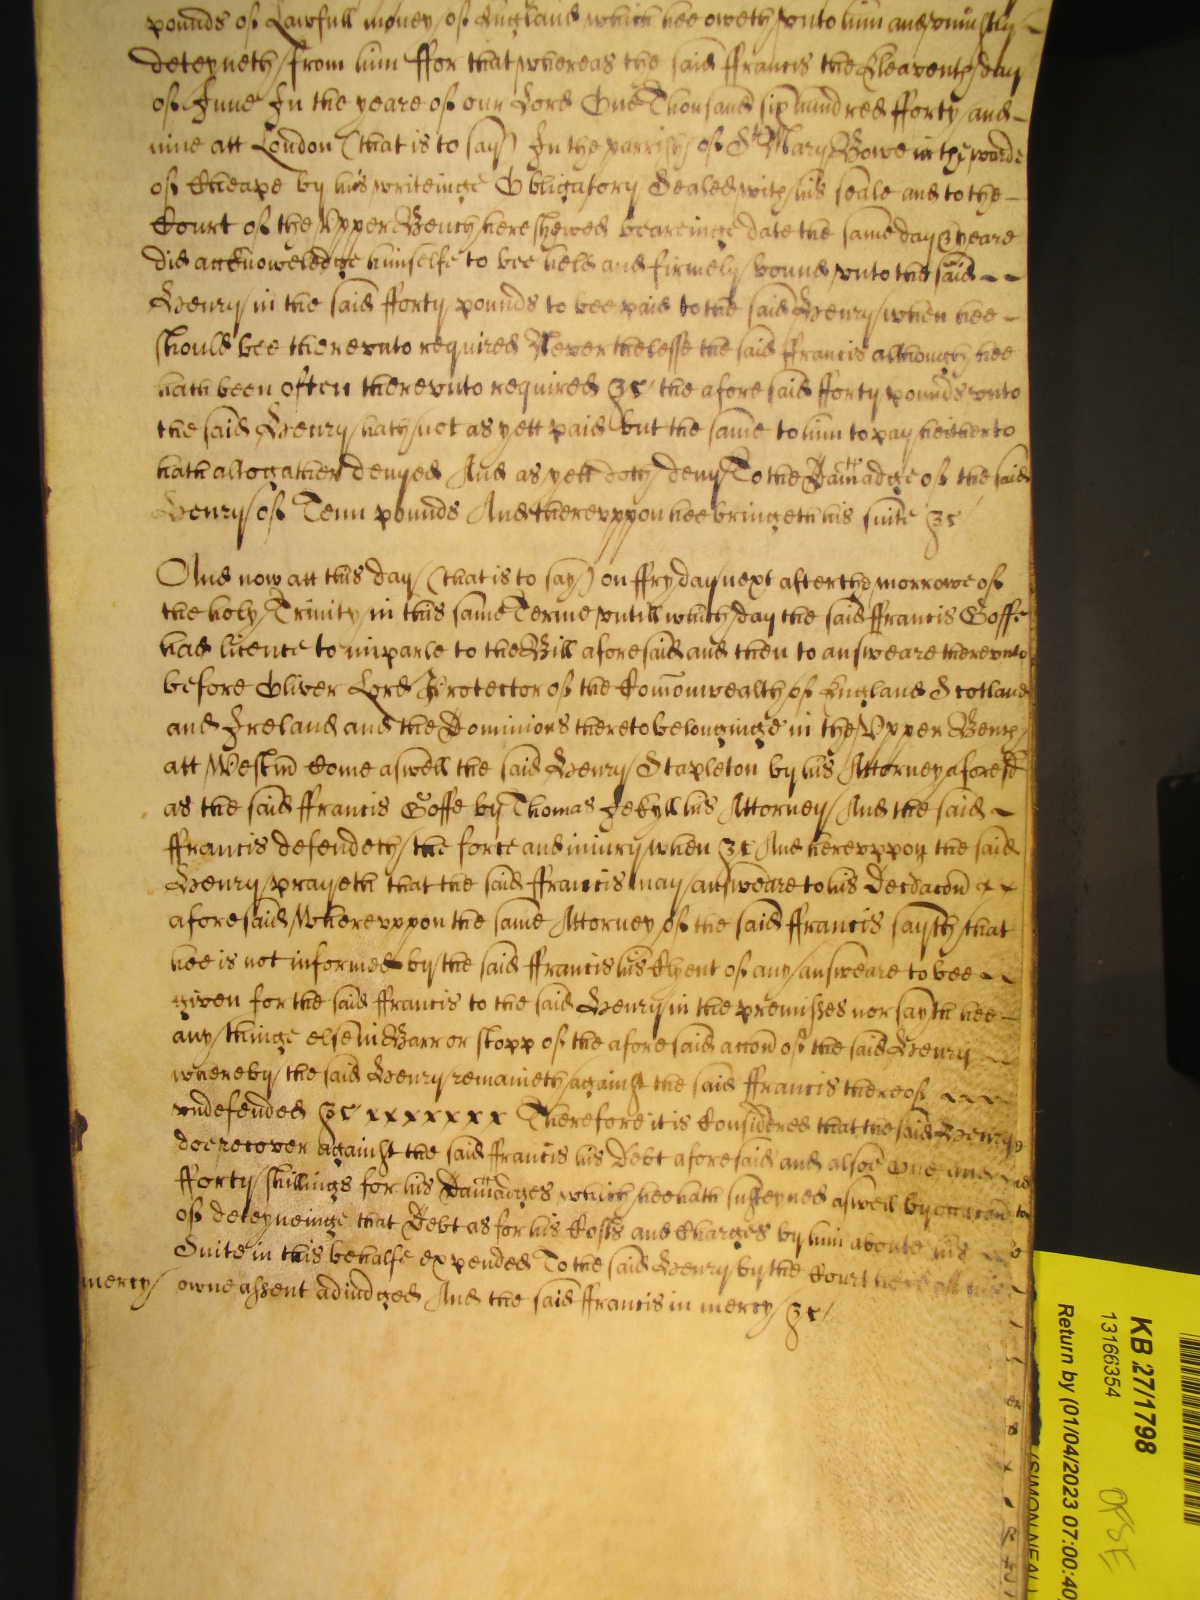 pounds of Lawfull money of England which hee oweth vnto him and vniustly
deteyneth from him ffor that whereas the said ffrancis the Eleaventh day
of June In the yeare of our Lord One Thousand six hundred fforty and
nine att London (that is to say) In the parrish of St Mary Bowe in the warde
of Cheape by his writeinge Obligatory Sealed with his seale and to the
Court of the Vpper Bench here shewed beareinge date the same day & yeare
did acknowledge himselfe to bee held and firmely bound vnto the said
Henry in the said fforty pounds to bee paid to the said Henry when hee
should bee therevnto required Neverthelesse the said ffrancis although hee
hath been often therevnto required &c the aforesaid fforty pounds vnto
the said Henry hath not as yett paid but the same to him to pay heitherto
hath altogather denyed And as yett doth deny To the Damadge of the said
Henry of Tenn pounds And therevppon hee bringeth his suite &c
And now att this day (that is to say) on ffryday next after the morrowe of
the holy Trinity in this same Terme vntill which day the said ffrancis Goffe
had licence to imparle to the Bill aforesaid and then to answeare therevnto
before Oliver Lord Protector of the Comonwealth of England Scotland
and Ireland and the Dominions thereto belonginge in the Vpper Bench
att Westm̃ Come aswell the said Henry Stapleton by his Attorney aforesd
as the said ffrancis Goffe by Thomas Jekyll his Attorney And the said
ffrancis defendeth the force and iniury when &c And herevppon the said
Henry prayeth that the said ffrancis may answeare to his Declacon̄ x x
aforesaid Wherevppon the same Attorney of the said ffrancis sayth that
hee is not informed by the said ffrancis his Clyent of any answeare to bee
given for the said ffrancis to the said Henry in the premisses nor sayth hee
any thinge else in Barr or stopp of the aforesaid accon̄ of the said Henry
whereby the said Henry remaineth against the said ffrancis thereof
vndefended &c x x x x x x x Therefore it is Considered that the said Henry
doe recover against the said ffrancis his Debt aforesaid and alsoe One and
fforty shillings for his Damadges which hee hath susteyned aswell by occacon̄
of deteyneinge that Debt as for his Costs and Charges by him aboute his
Suite in this behalfe expended To the said Henry by the Court here of his
mercy owne assent adiudged And the said ffrancis in mercy &c
KB 27/1798
13166354
Return by (01/04/2023 07:00:40
(SIMON NEAL)